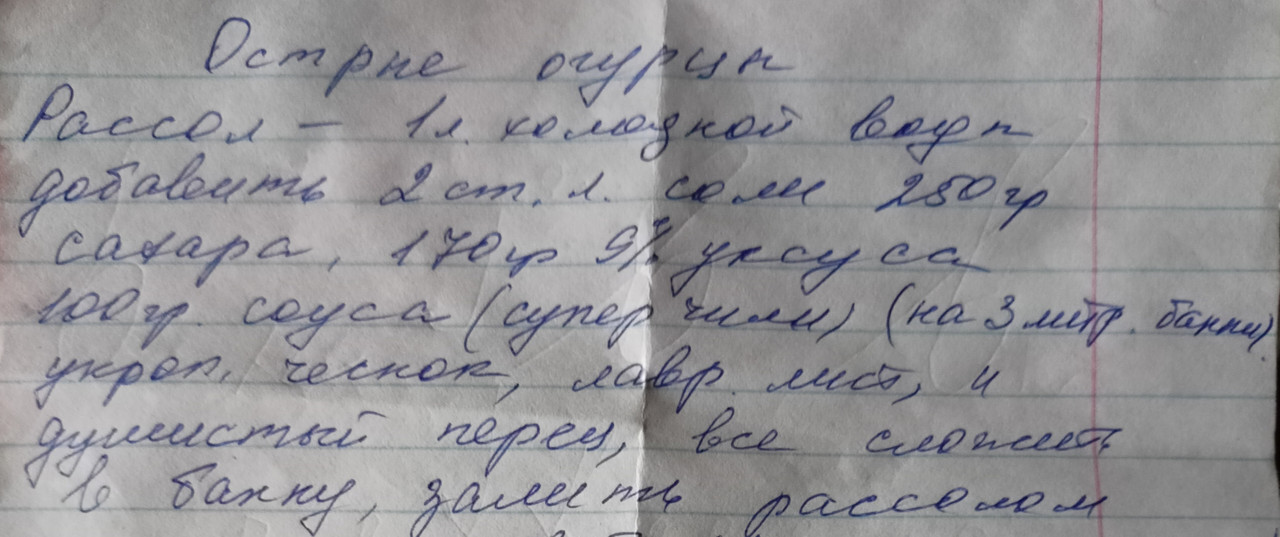 Острые огурцы
Рассол – 1л. холодной воды
добавить 2 ст. л. соли 250гр
сахара, 170гр 9% уксуса
100гр. соуса (супер чили) (на 3 литр. банки)
укроп, чеснок, лавр. лист, и
душистый перец, все сложить
в банку, залить рассолом